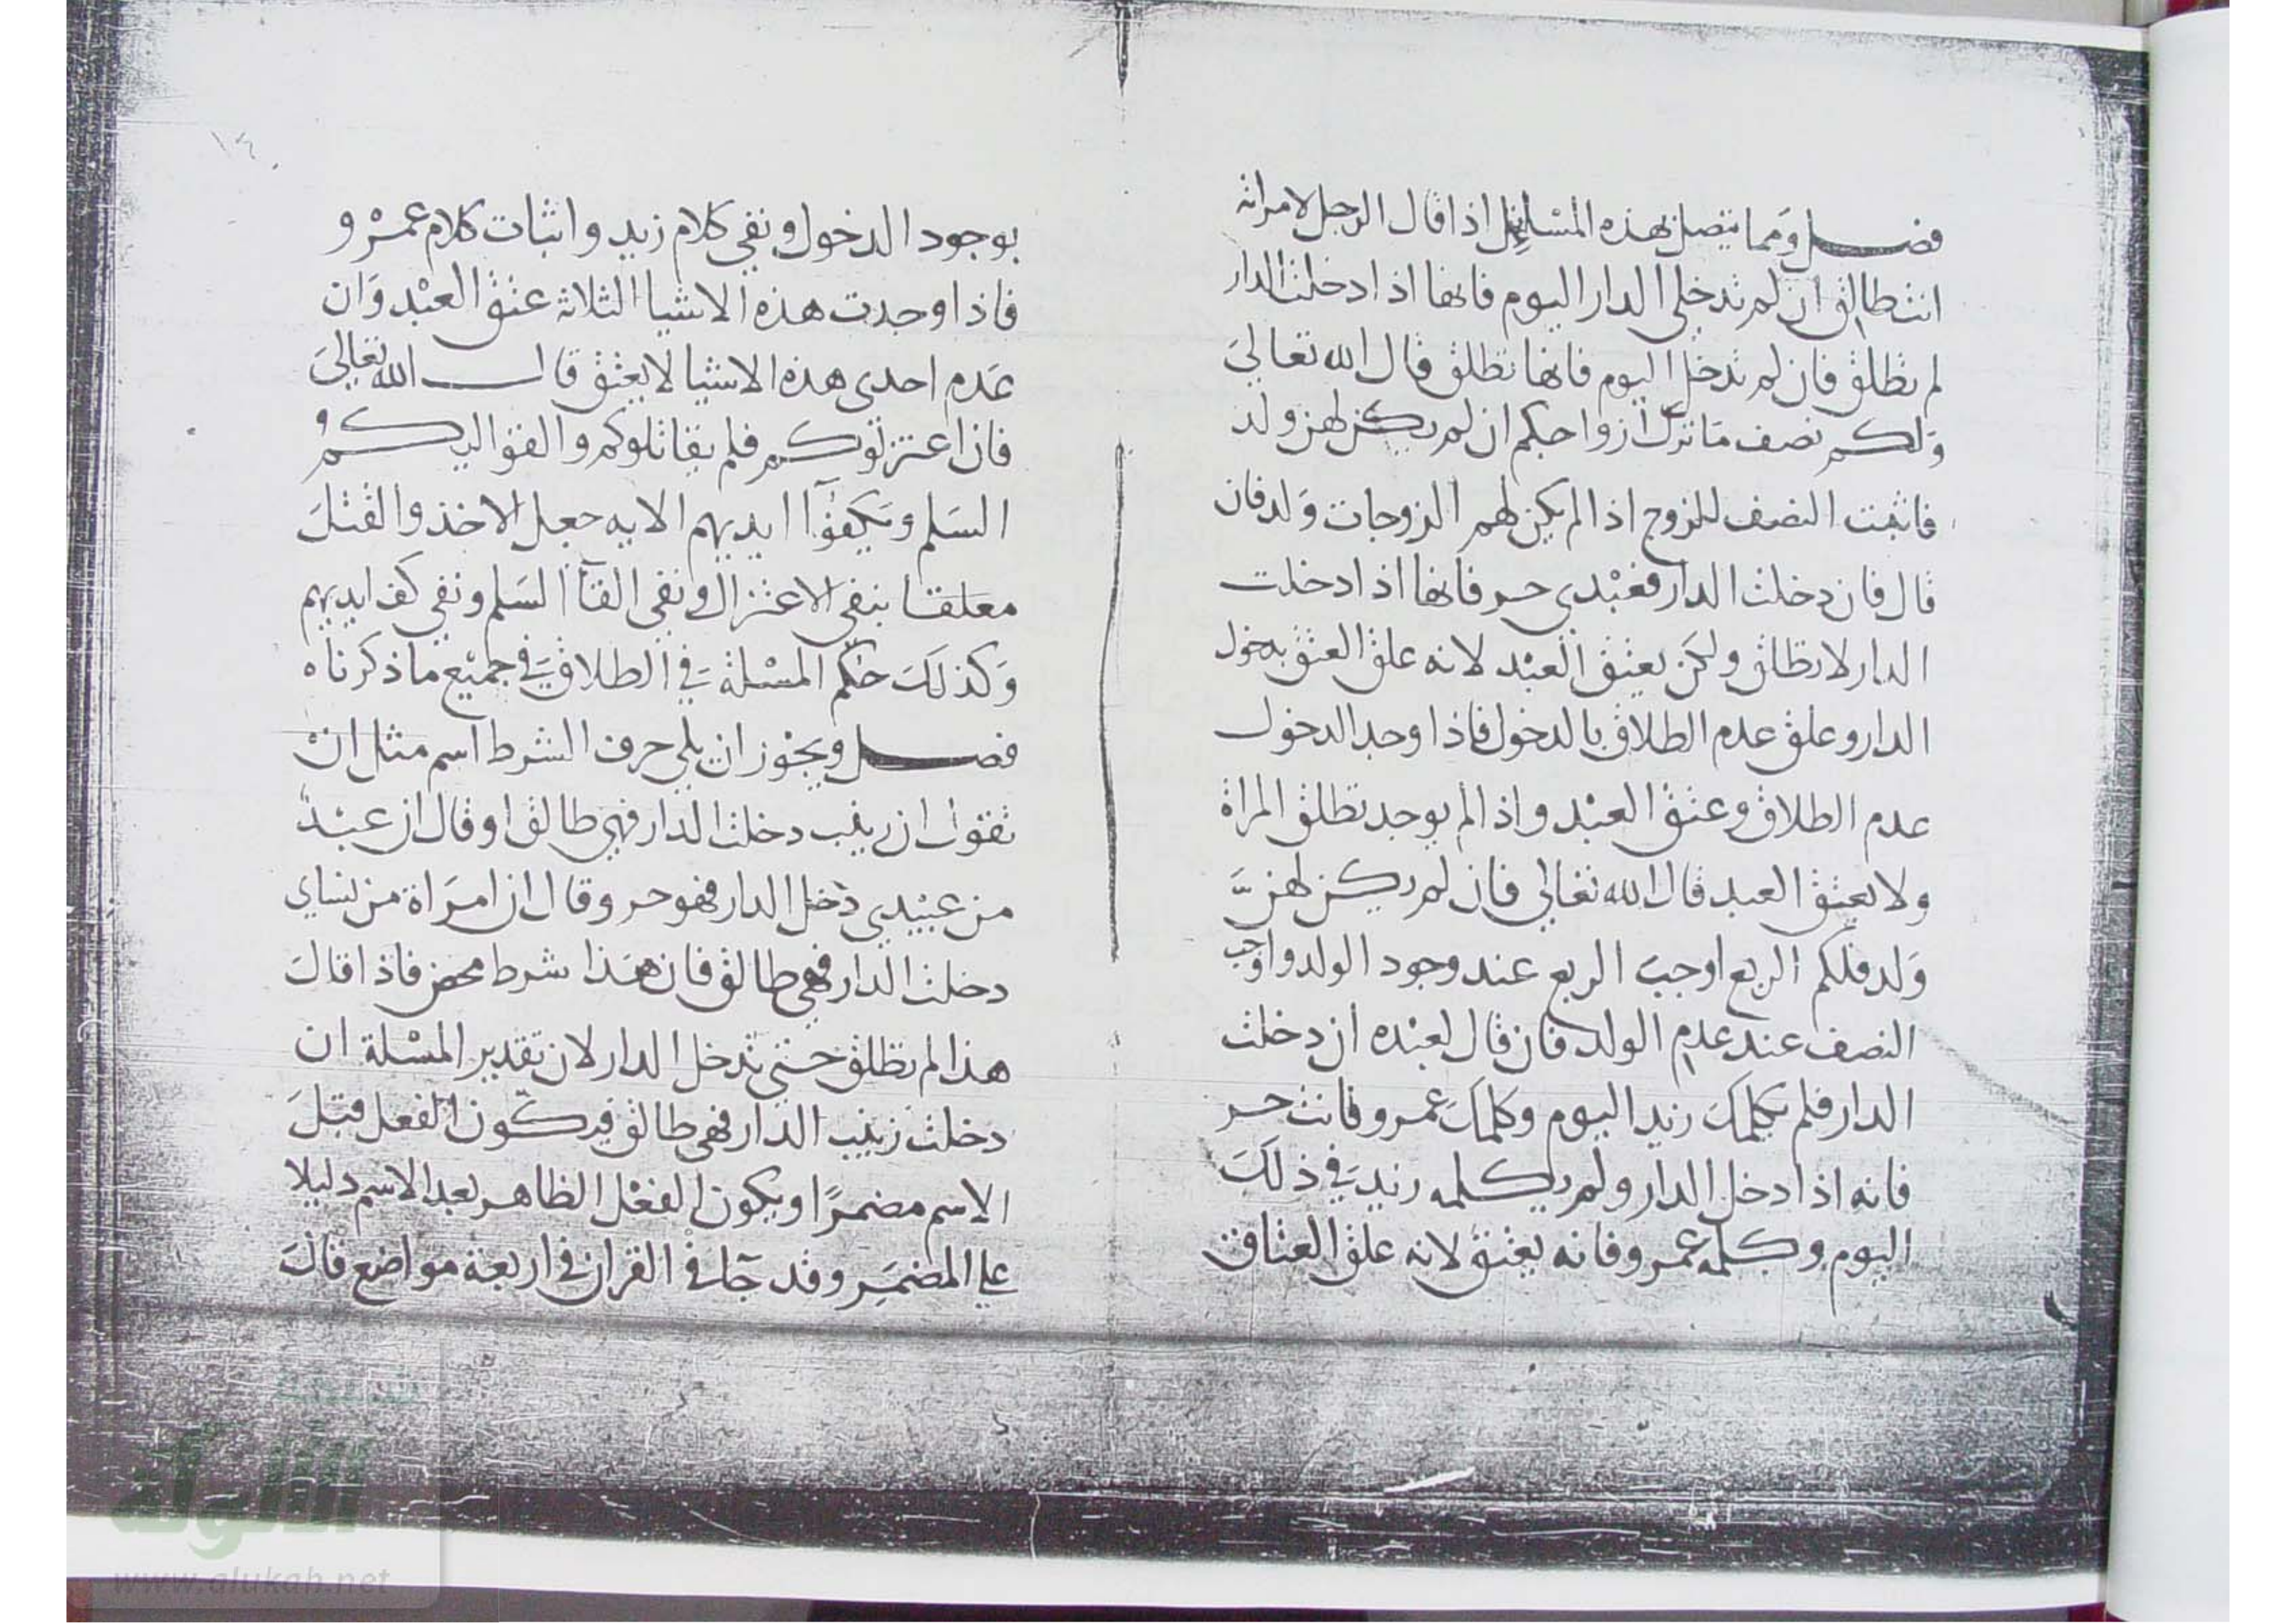 فصل ومما يتصل بهذه المسايل اذا قال الرجل لامراته
انت طالق ان لم تدخلي الدار اليوم فانها اذا دخلت الدار
لم تطلق فان لم تدخل اليوم فانها تطلق قال الله تعالى
ولكم نصف ما ترك ازواجكم ان لم يكن لهن ولد
فاثبت النصف للزوج اذا لم يكن لهم الزوجات ولد فان
قال فان دخلت الدار فعبدي حر فانها اذا دخلت
الدار لا تطلق ولكن يعتق العبد لانه علق العتق بدخول
الدار وعلق عدم الطلاق بالدخول فاذا وجد الدخول
عدم الطلاق وعتق العبد واذا لم يوجد تطلق المراة
ولا يعتق العبد قال الله تعالى فان لم يكن لهن
ولد فلكم الربع اوجب الربع عند وجود الولد واوجب
النصف عند عدم الولد فان قال لعبده ان دخلت
الدار فلم يكلمك زيد اليوم وكلمك عمرو فانت حر
فانه اذا دخل الدار ولم يكلمه زيد في ذلك
اليوم وكلمه عمرو فانه يعتق لانه علق العتاق
١٤
بوجود الدخول ونفي كلام زيد واثبات كلام عمرو
فاذا وجدت هذه الاشيا الثلاثة عتق العبد وان
عدم احدى هذه الاشيا لا يعتق قال الله تعالى
فان اعتزلوكم فلم يقاتلوكم والقوا اليكم و
السلم ويكفوا ايديهم الايه جعل الاخذ والقتل
معلقا بنفي الاعتزال ونفي القآ السلم ونفي كف ايديهم
وكذلك حكم المسلة في الطلاق في جميع ما ذكرناه
فصل ويجوز ان يلي حرف الشرط اسم مثل ان
تقول ان زينب دخلت الدار فهي طالق او قال ان عبد
من عبيدي دخل الدار فهو حر وقال ان امراة من نساي
دخلت الدار فهي طالق فان هذا شرط محض فاذا قال
هذا لم تطلق حتى تدخل الدار لان تقدير المسلة ان
دخلت زينب الدار فهي طالق فيكون الفعل قبل
الاسم مضمرا ويكون الفعل الظاهر بعد الاسم دليلا
على المضمر وقد جآ في القران في اربعة مواضع قال
الألوكة
www.alukah.net